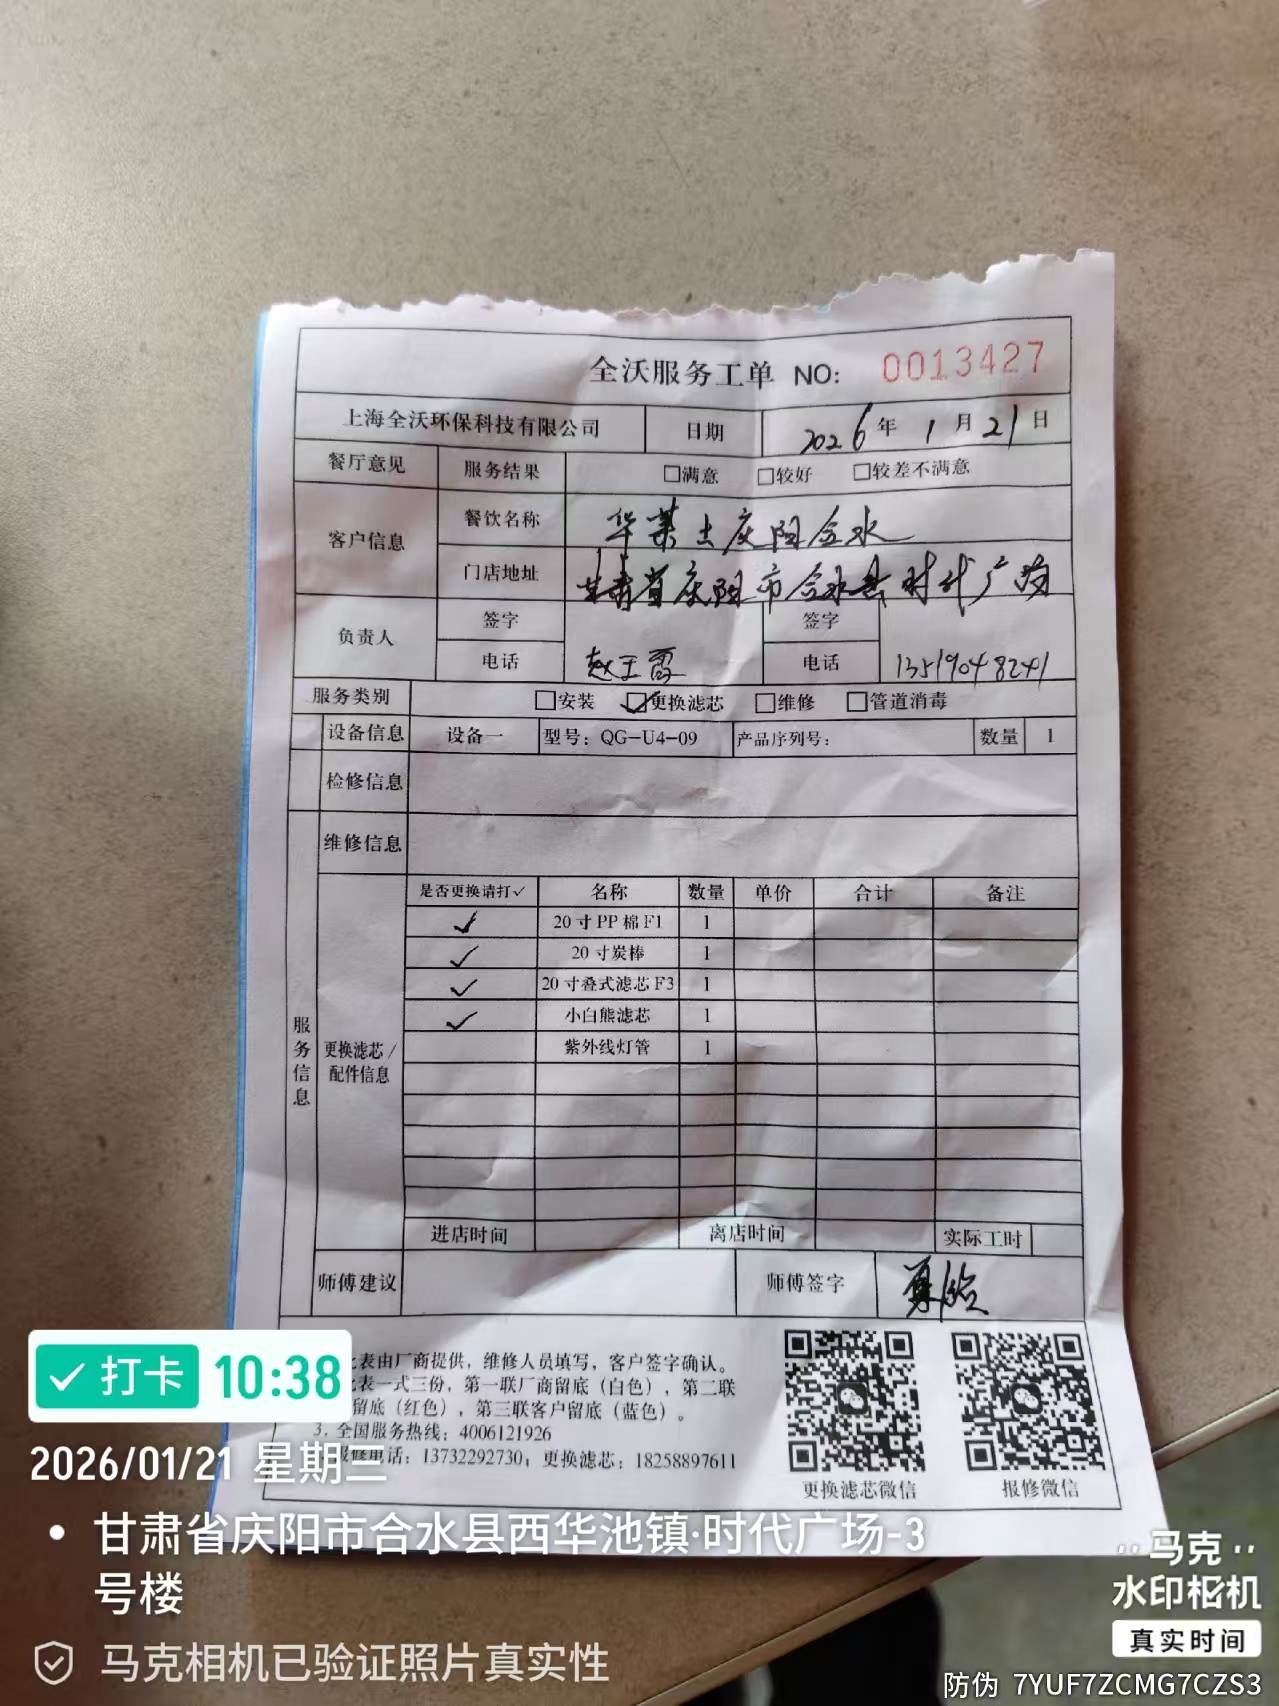 全沃服务工单 NO: 0013427
上海全沃环保科技有限公司 日期 2026年 1月21日
餐厅意见 服务结果 □满意 □较好 □较差不满意
客户信息 餐饮名称 华莱士庆阳合水
门店地址 甘肃省庆阳市合水县时代广场
负责人 签字 签字
电话 赵王霞 电话 13519048241
服务类别 □安装 ☑更换滤芯 □维修 □管道消毒
设备信息 设备一 型号：QG-U4-09 产品序列号： 数量 1
检修信息
维修信息
是否更换请打✓ 名称 数量 单价 合计 备注
✓ 20寸PP棉F1 1
✓ 20寸炭棒 1
✓ 20寸叠式滤芯F3 1
✓ 小白熊滤芯 1
紫外线灯管 1
服务信息
更换滤芯/
配件信息
进店时间 离店时间 实际工时
师傅建议 师傅签字
表由厂商提供，维修人员填写，客户签字确认。
表一式三份，第一联厂商留底（白色），第二联
留底（红色），第三联客户留底（蓝色）。
3. 全国服务热线：4006121926
报修电话：13732292730；更换滤芯：18258897611
更换滤芯微信 报修微信
打卡 10:38
2026/01/21 星期三
甘肃省庆阳市合水县西华池镇·时代广场-3
号楼
马克相机已验证照片真实性
马克
水印相机
真实时间
防伪 7YUF7ZCMG7CZS3